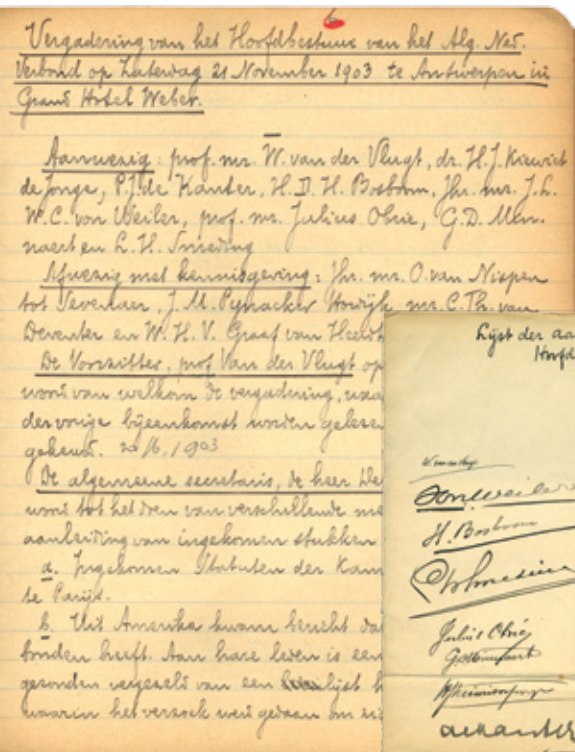 6
Vergadering van het Hoofdbestuur van het Alg. Ned.
Verbond op Zaterdag 21 November 1903 te Antwerpen in
Grand Hotel Weber.
Aanwezig: prof. mr. W. van der Vlugt, dr. H.J. Kiewiet
de Jonge, P.J. de Kanter, H.D.H. Bosboom, Jhr. mr. J.L.
W.C. von Weiler, prof. mr. Julius Obrie, G.D. Min-
naert en L.H. Smeding
Afwezig met kennisgeving: Jhr. mr. O. van Nispen
tot Sevenaer, J.M. Pynacker Hordijk, mr. C.Th. van
Deventer en W.H.V. Graaf van
De Voorzitter, prof. Van der Vlugt op
woord van welkom de vergadering,
der vorige bijeenkomst worden gelezen
gekeurd. 20/6/1903
De algemeene secretaris, de heer
woord tot het doen van verschillende
aanleiding van ingekomen stukken
a. Ingekomen Statuten der Kam
te Parijs.
b. Uit Amerika kwam bericht dat
bonden heeft. Aan hare leden is een
gezonden vergezeld van een lijst
waarin het verzoek werd gedaan om
Lijst der aa
Hoofd
von Weiler
H. Bosboom
Julius Obrie
GDMinnaert
de Kanter